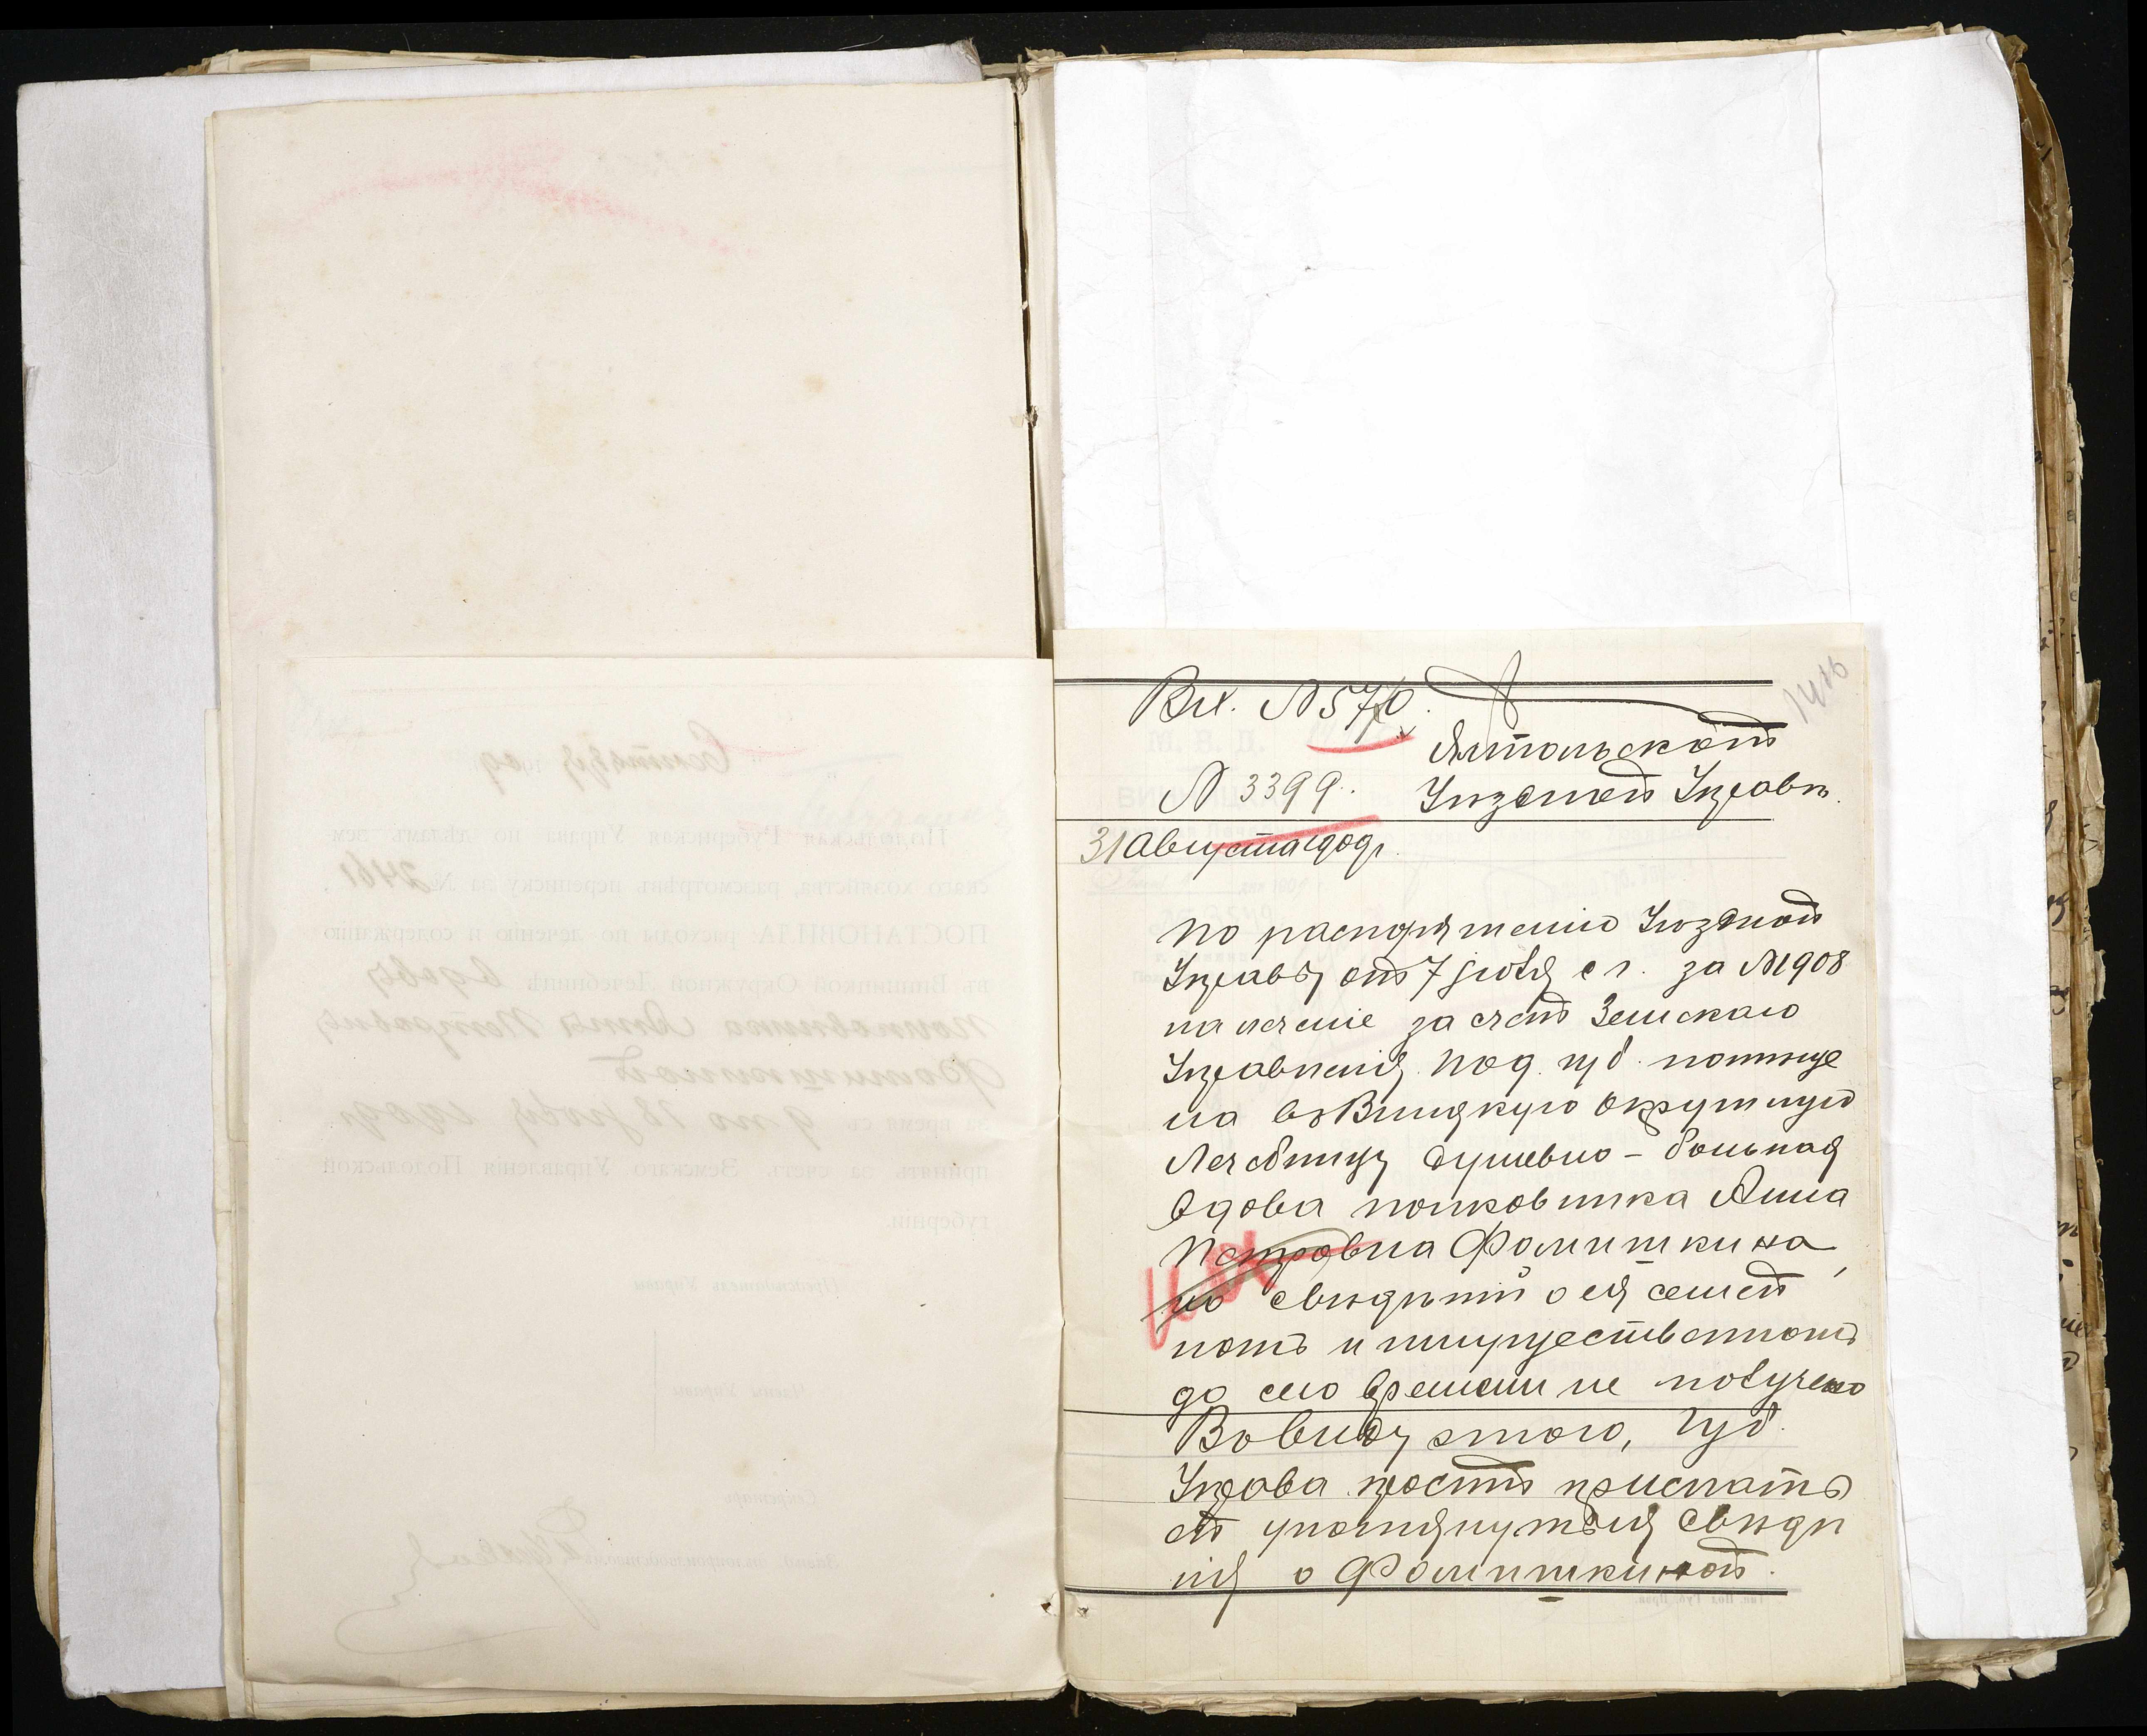 Вх. № 570.
Ямпольской
№ 3399. Уѣздной Управѣ.
31 Августа 1909 г.
1416
По распоряженію Уѣздной
Управы отъ 7 Іюля с г. за № 1908
на леченіе за счетъ Земскаго
Управленія Под. губ. помѣще
на въ Винницкую Окружную
Лечебницу душевно-больная
вдова полковника Анна
Петровна Фомишкина,
но свѣдѣній о ея семей
номъ и имущественномъ
до сего времени не получено
Въ виду этого, Губ.
Управа проситъ прислать
ей упомянутыя свѣдѣ
нія о Фомишкиной.
Сентября 190 9
Подольская Губернская Управа по дѣламъ зем
скаго хозяйства, разсмотрѣвъ переписку за № 2461
ПОСТАНОВИЛА: расходы по леченію и содержанію
въ Винницкой Окружной Лечебницѣ вдовы
полковника Анны Петровны
Фомишкиной
за время съ 9 по 28 Іюля 1909 г.
принять на счетъ Земскаго Управленія Подольской
губерніи.
Предсѣдатель Управы
Члены Управы
Секретарь